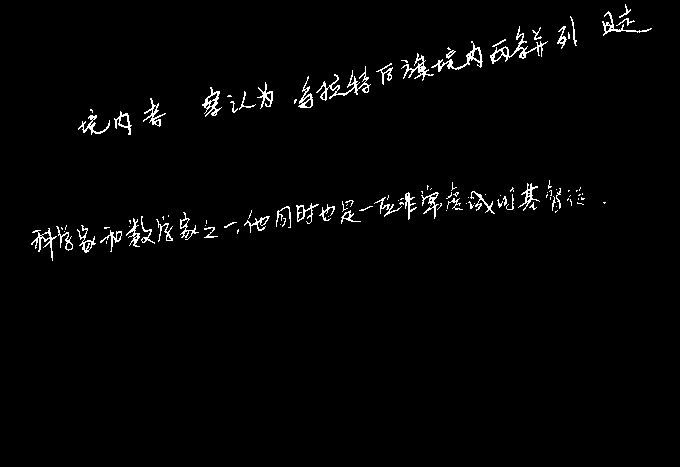 境内者 察认为,乌拉特后旗境内两条并列 且走
科学家和数学家之一,他同时也是一位非常虔诚的基督徒.